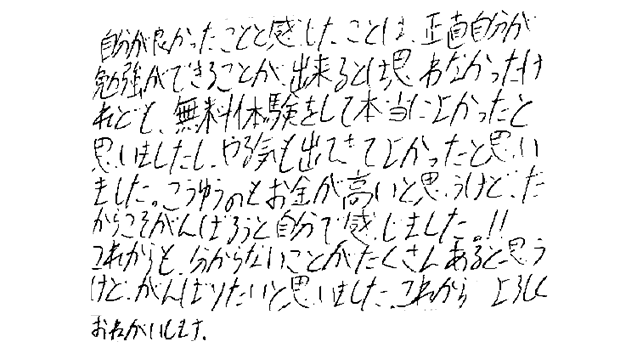 自分が良かったことと感じたことは、正直自分が
勉強ができることが出来るとは思わなかったけ
れども、無料体験をして本当によかったと
思いましたし、やる気も出てきてよかったと思い
ました。こうゆうのもお金が高いと思うけど、だ
からこそがんばろうと自分で感じました。!!
これからも、分からないことがたくさんあると思う
けど、がんばりたいと思いました。これから よろしく
おねがいします。